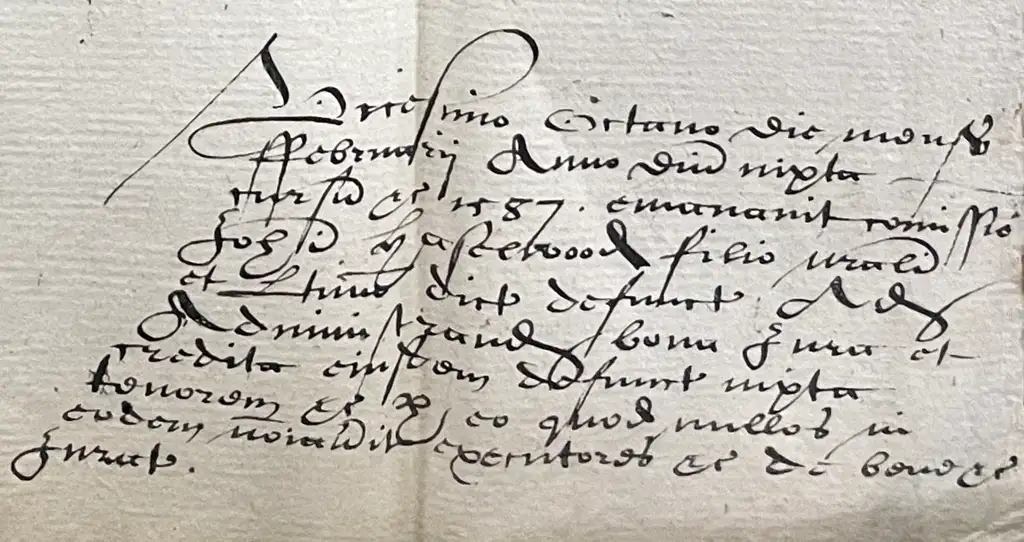 Vicesimo Octavo die mens
ffebruarij Anno Dni iuxta
cursū &c 1587. emanavit comissio
Johi Haselwood filio nrali
et ltimo dict defunct Ad
Administrand bona Jura et
credita eiusdem defunct iuxta
tenorem &c eo quod nullos in
eodem noiavit executores &c de bene &c
Jurat.